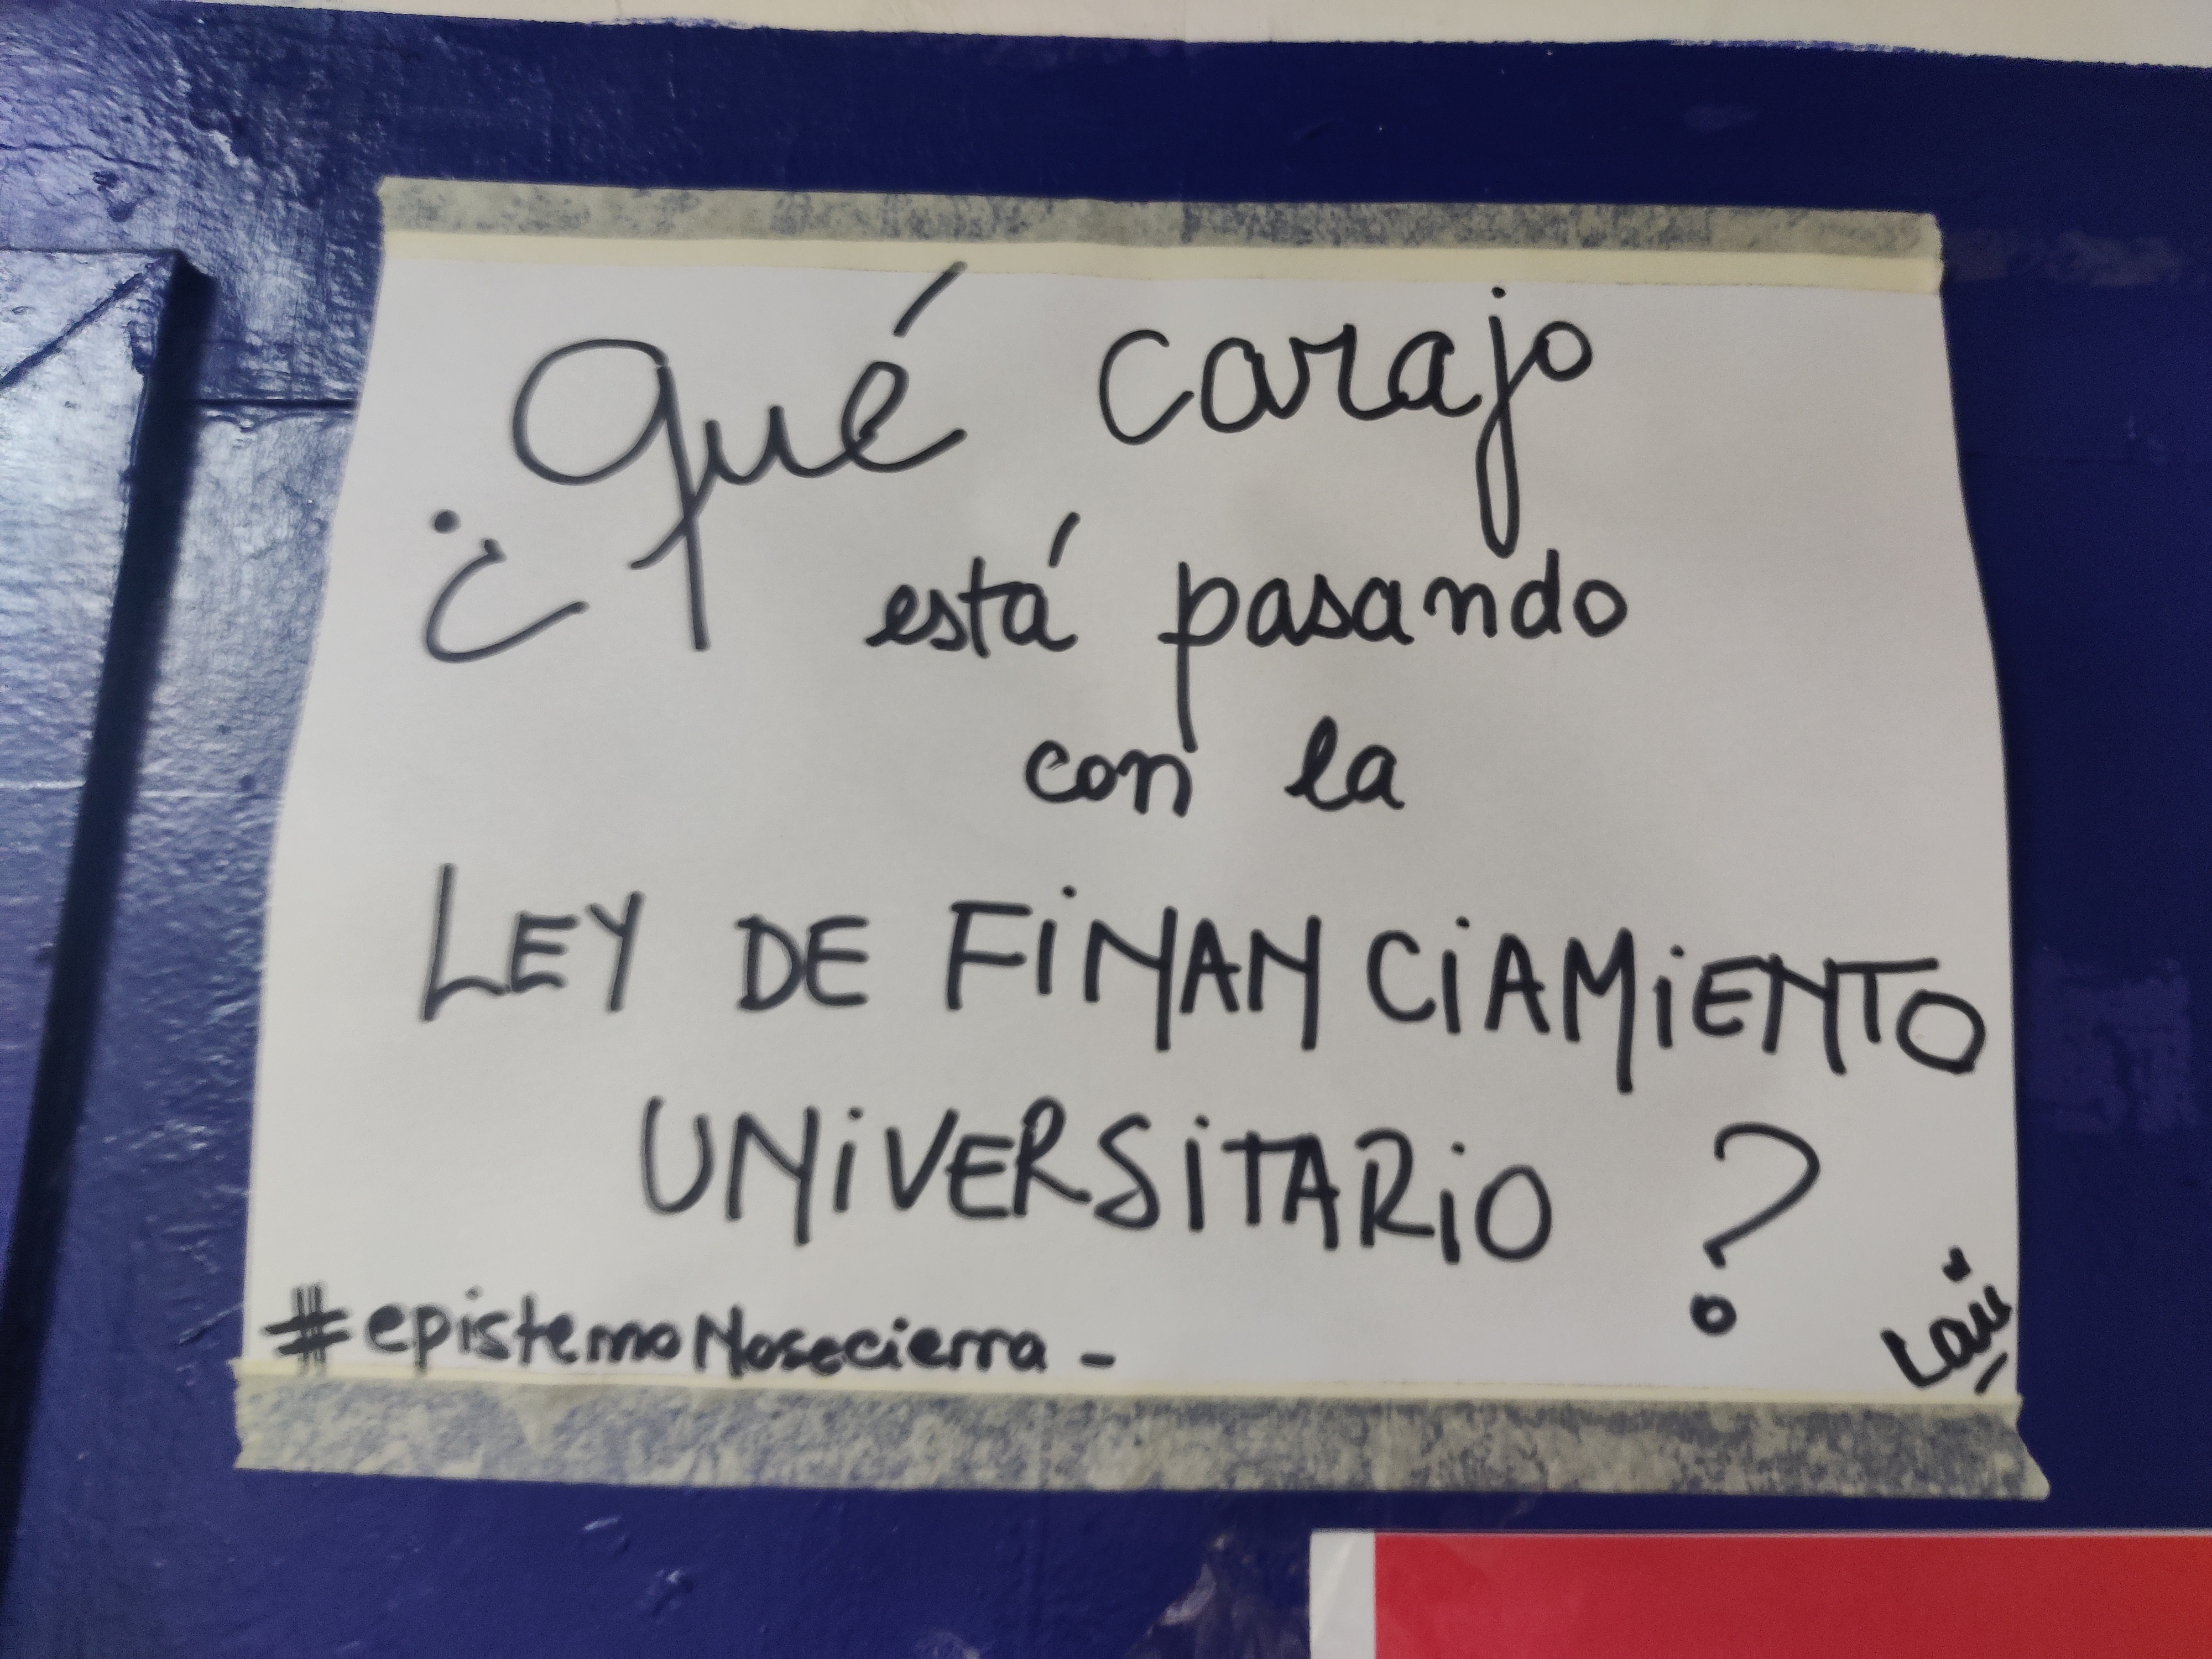 ¿Qué carajo
está pasando
con la
LEY DE FiNANCiAMiENTO
UNiVERSiTARiO?
#epistemoNosecierra -